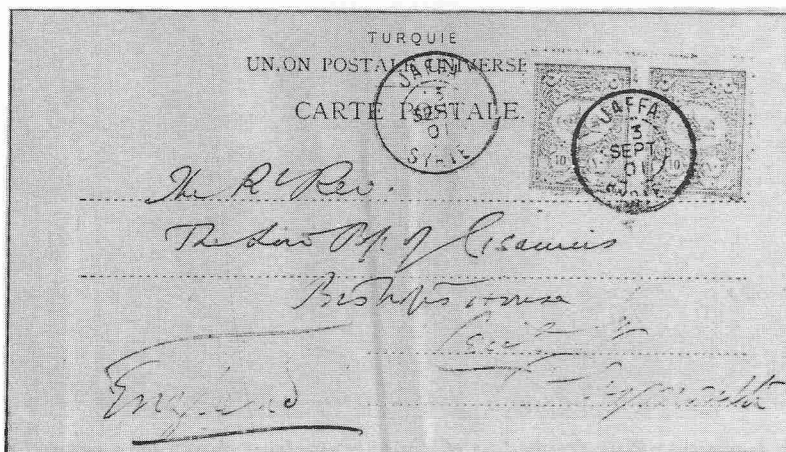 TURQUIE
UN.ON POSTALE UNIVERSE
CARTE POSTALE.
JAFFA
3
SEPT
01
SYRIE
JAFFA
3
SEPT
01
10
10
The Rt Rev.
The Lord Bp. of
Bishop's House
England